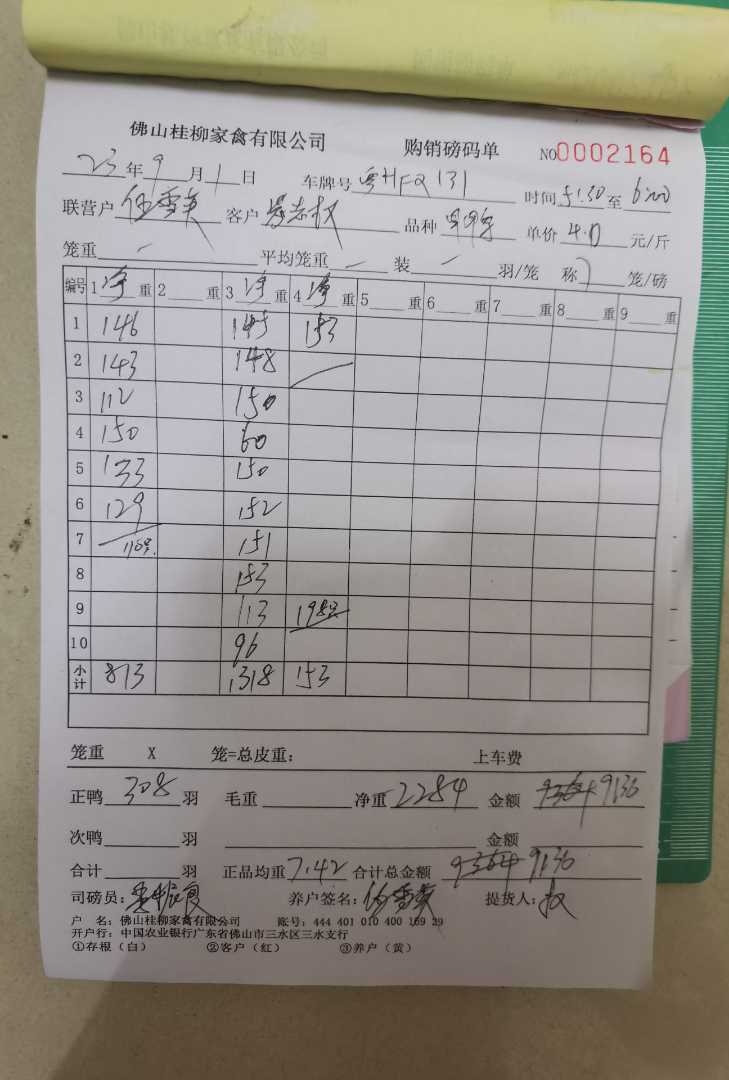 佛山桂柳家禽有限公司 购销磅码单 NO0002164
23年9月1日 车牌号 粤HFQ131 时间 5:30至6:00
联营户 伍雪英 客户 志权 品种 单价 4.0 元/斤
笼重 - 平均笼重 - 装 - 羽/笼 称 笼/磅
编号 1净重 2重 3净重 4净重 5重 6重 7重 8重 9重
1 146 145 153
2 143 148
3 112 150
4 150 60
5 133 150
6 129 152
7 110只 151
8 153
9 113 198只
10 96
小计 813 1318 153
笼重 X 笼=总皮重: 上车费
正鸭 308 羽 毛重 净重 2284 金额 9364 9136
次鸭 羽 金额
合计 羽 正品均重 7.42 合计总金额 9364 9136
司磅员: 养户签名: 伍雪英 提货人: 权
户 名: 佛山桂柳家禽有限公司 账号: 444 401 010 400 169 29
开户行: 中国农业银行广东省佛山市三水区三水支行
①存根(白) ②客户(红) ③养户(黄)